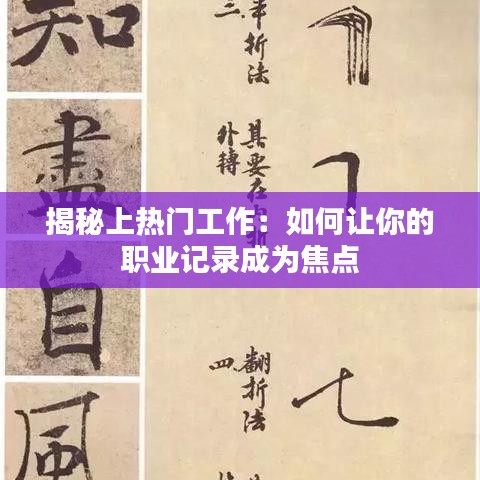 揭秘上热门工作：如何让你的
职业记录成为焦点
知
盡
自
風
三、半折法
其要在
外轉
四、翻折法